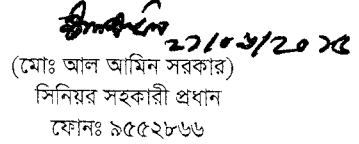 ২১/০৬/২০১৫
(মোঃ আল আমিন সরকার)
সিনিয়র সহকারী প্রধান
ফোনঃ ৯৫৫২৮৬৬